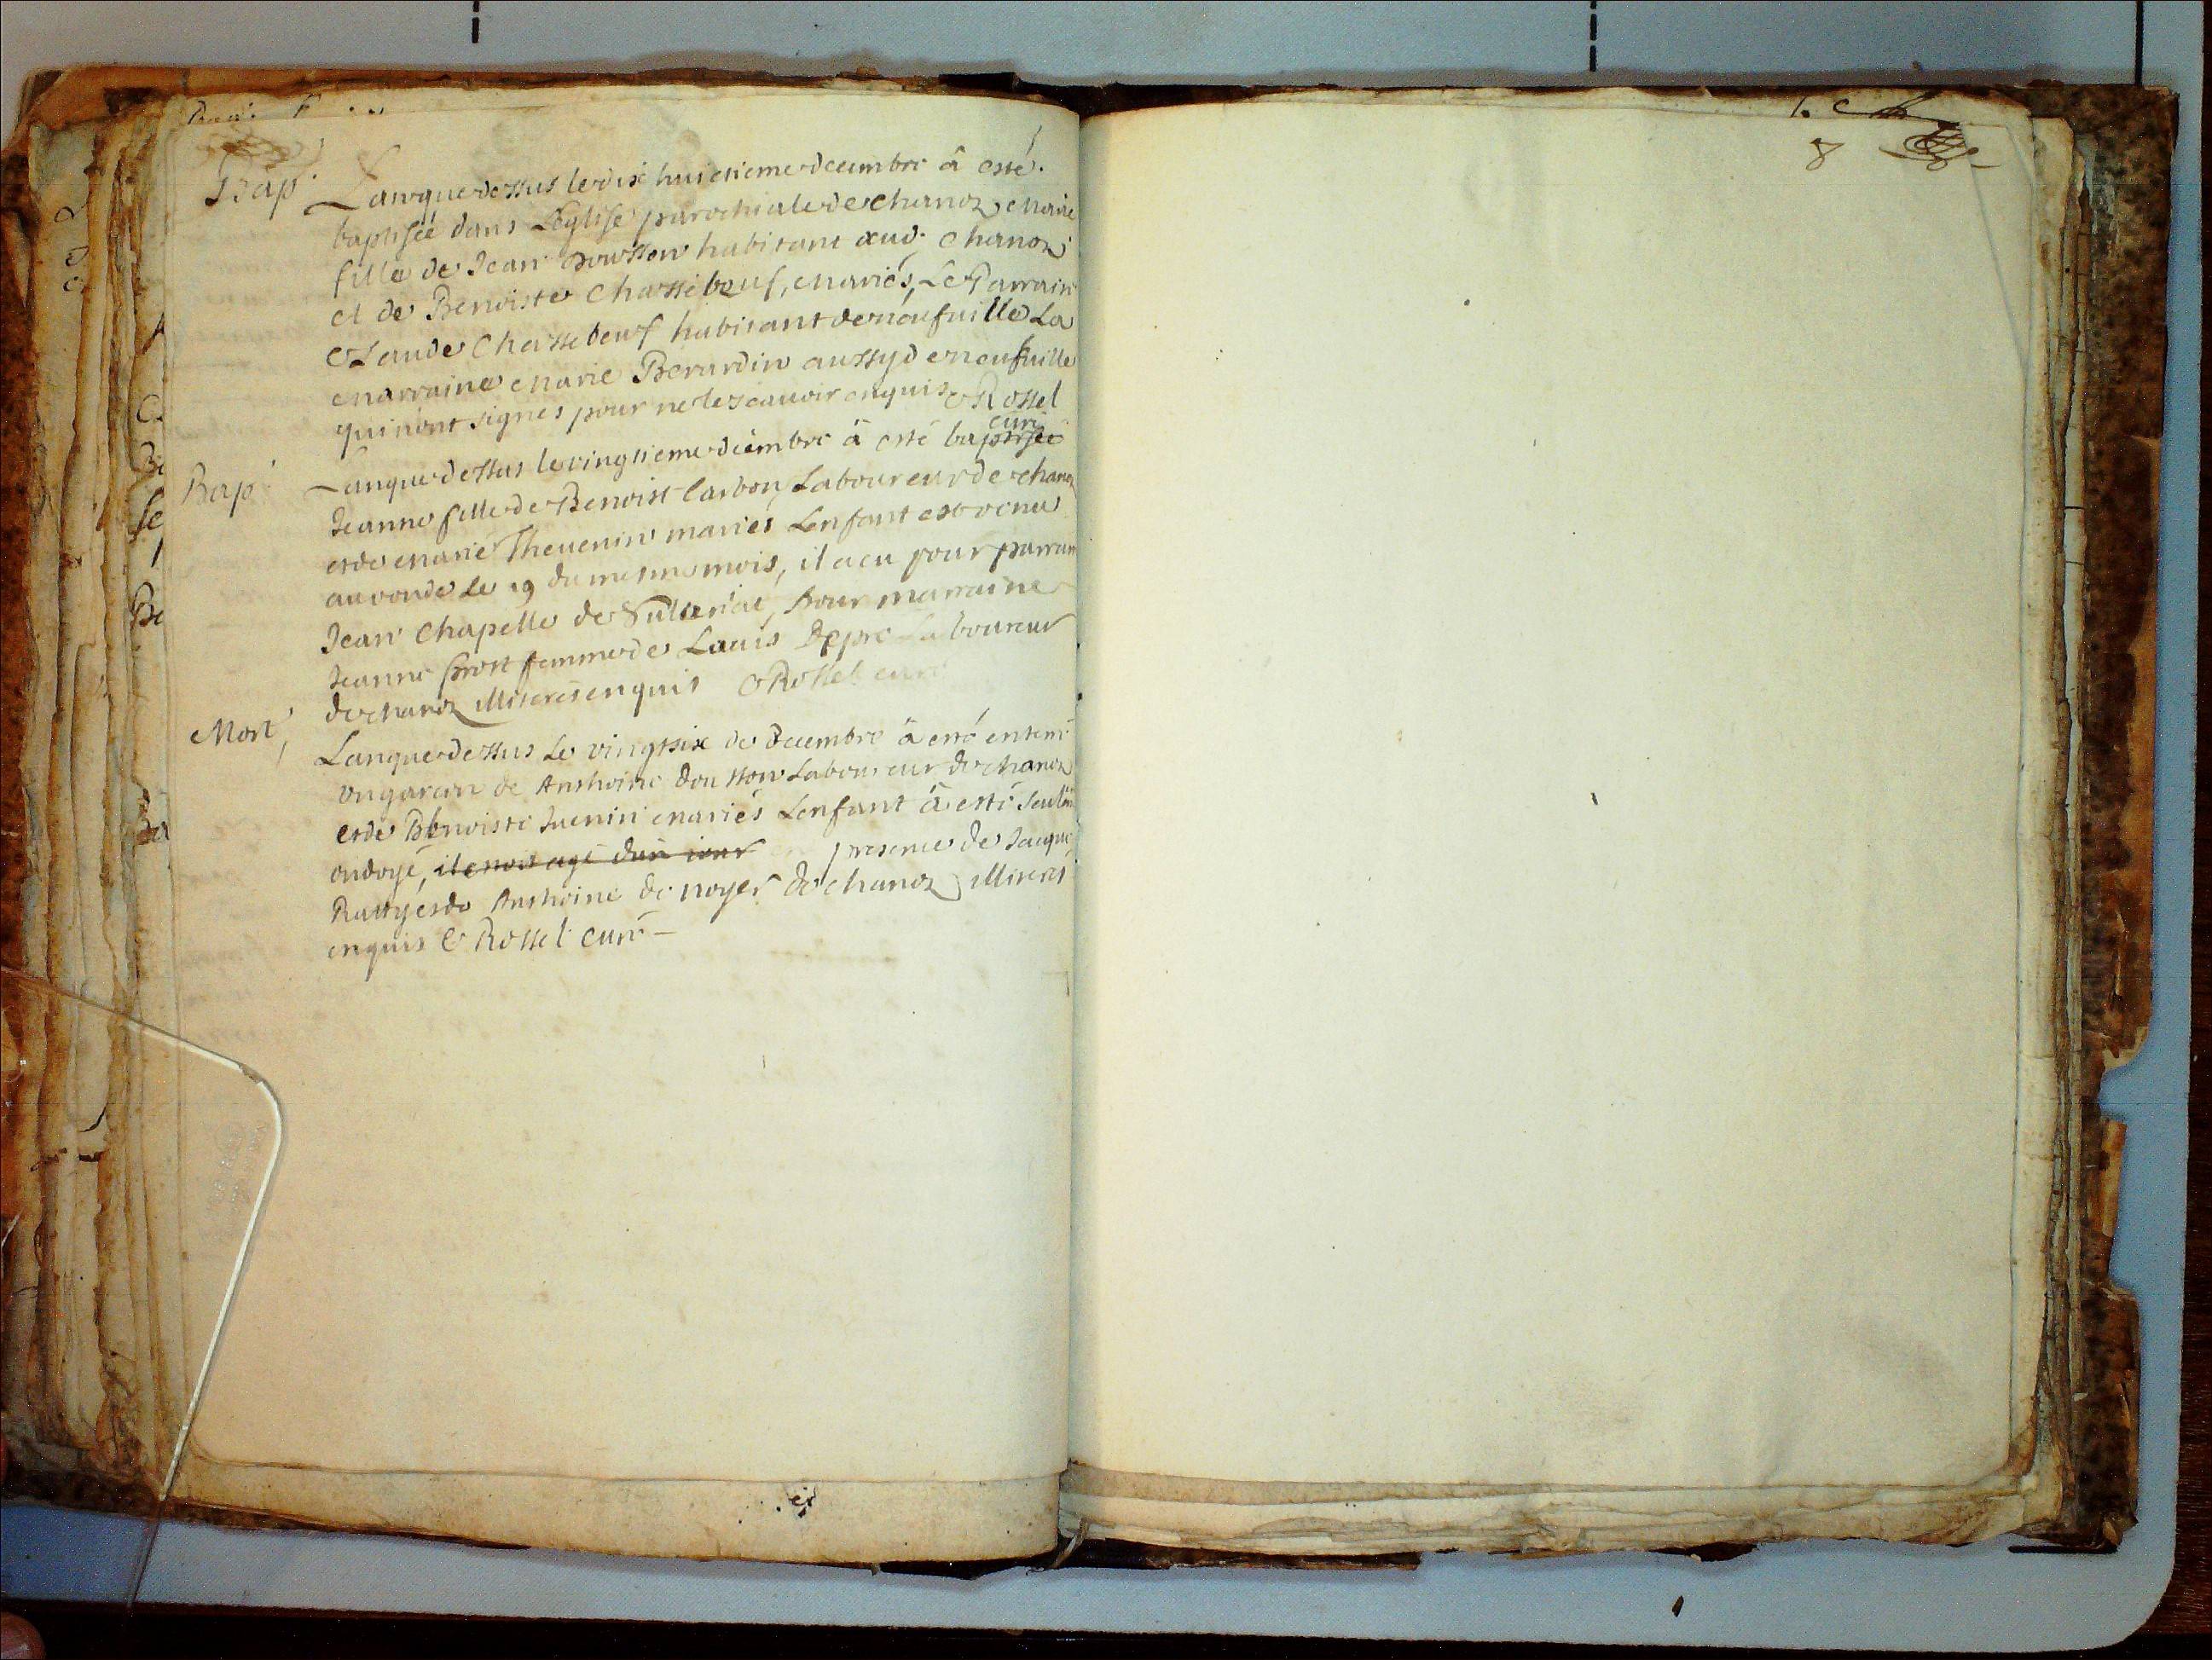 Bap
Lan que dessus le dix huictieme decembre â esté
baptisée dans Léglise parochiale de chanoz marie
fille de Jean Dousson habitant aud. Chanoz
et de Benoiste Chassebœuf, mariés, Le Parrain
Claude Chassebeuf habitant de neufuille La
marraine marie Berardin aussy de neufuille
qui nont signes pour ne le scauoir enquis C Rossel
curé
Bap
Lan que dessus le vingtieme decembre â esté baptisée
Jeanne fille de Benoist Carbon Laboureur de chanoz
et de marie Theuenin mariés Lenfant est venue
au monde Le 19 du mesme mois, il a eu pour parrain
Jean Chapelle de Sulignat, pour marraine
Jeanne prost femme de Louis Depre Laboureur
de chanoz illiterés enquis C Rossel curé
Mort
Lan que dessus Le vingt six de decembre â esté enterré
un garcon de Anthoine Dousson Laboureur de chanoz
et de Benoiste Juenin mariés Lenfant â esté seulem
ondoyé, il estoit agé dun jour en presence de Jacque
Ratty et de Anthoine de noyer de chanoz illiterés
enquis C Rossel curé
8